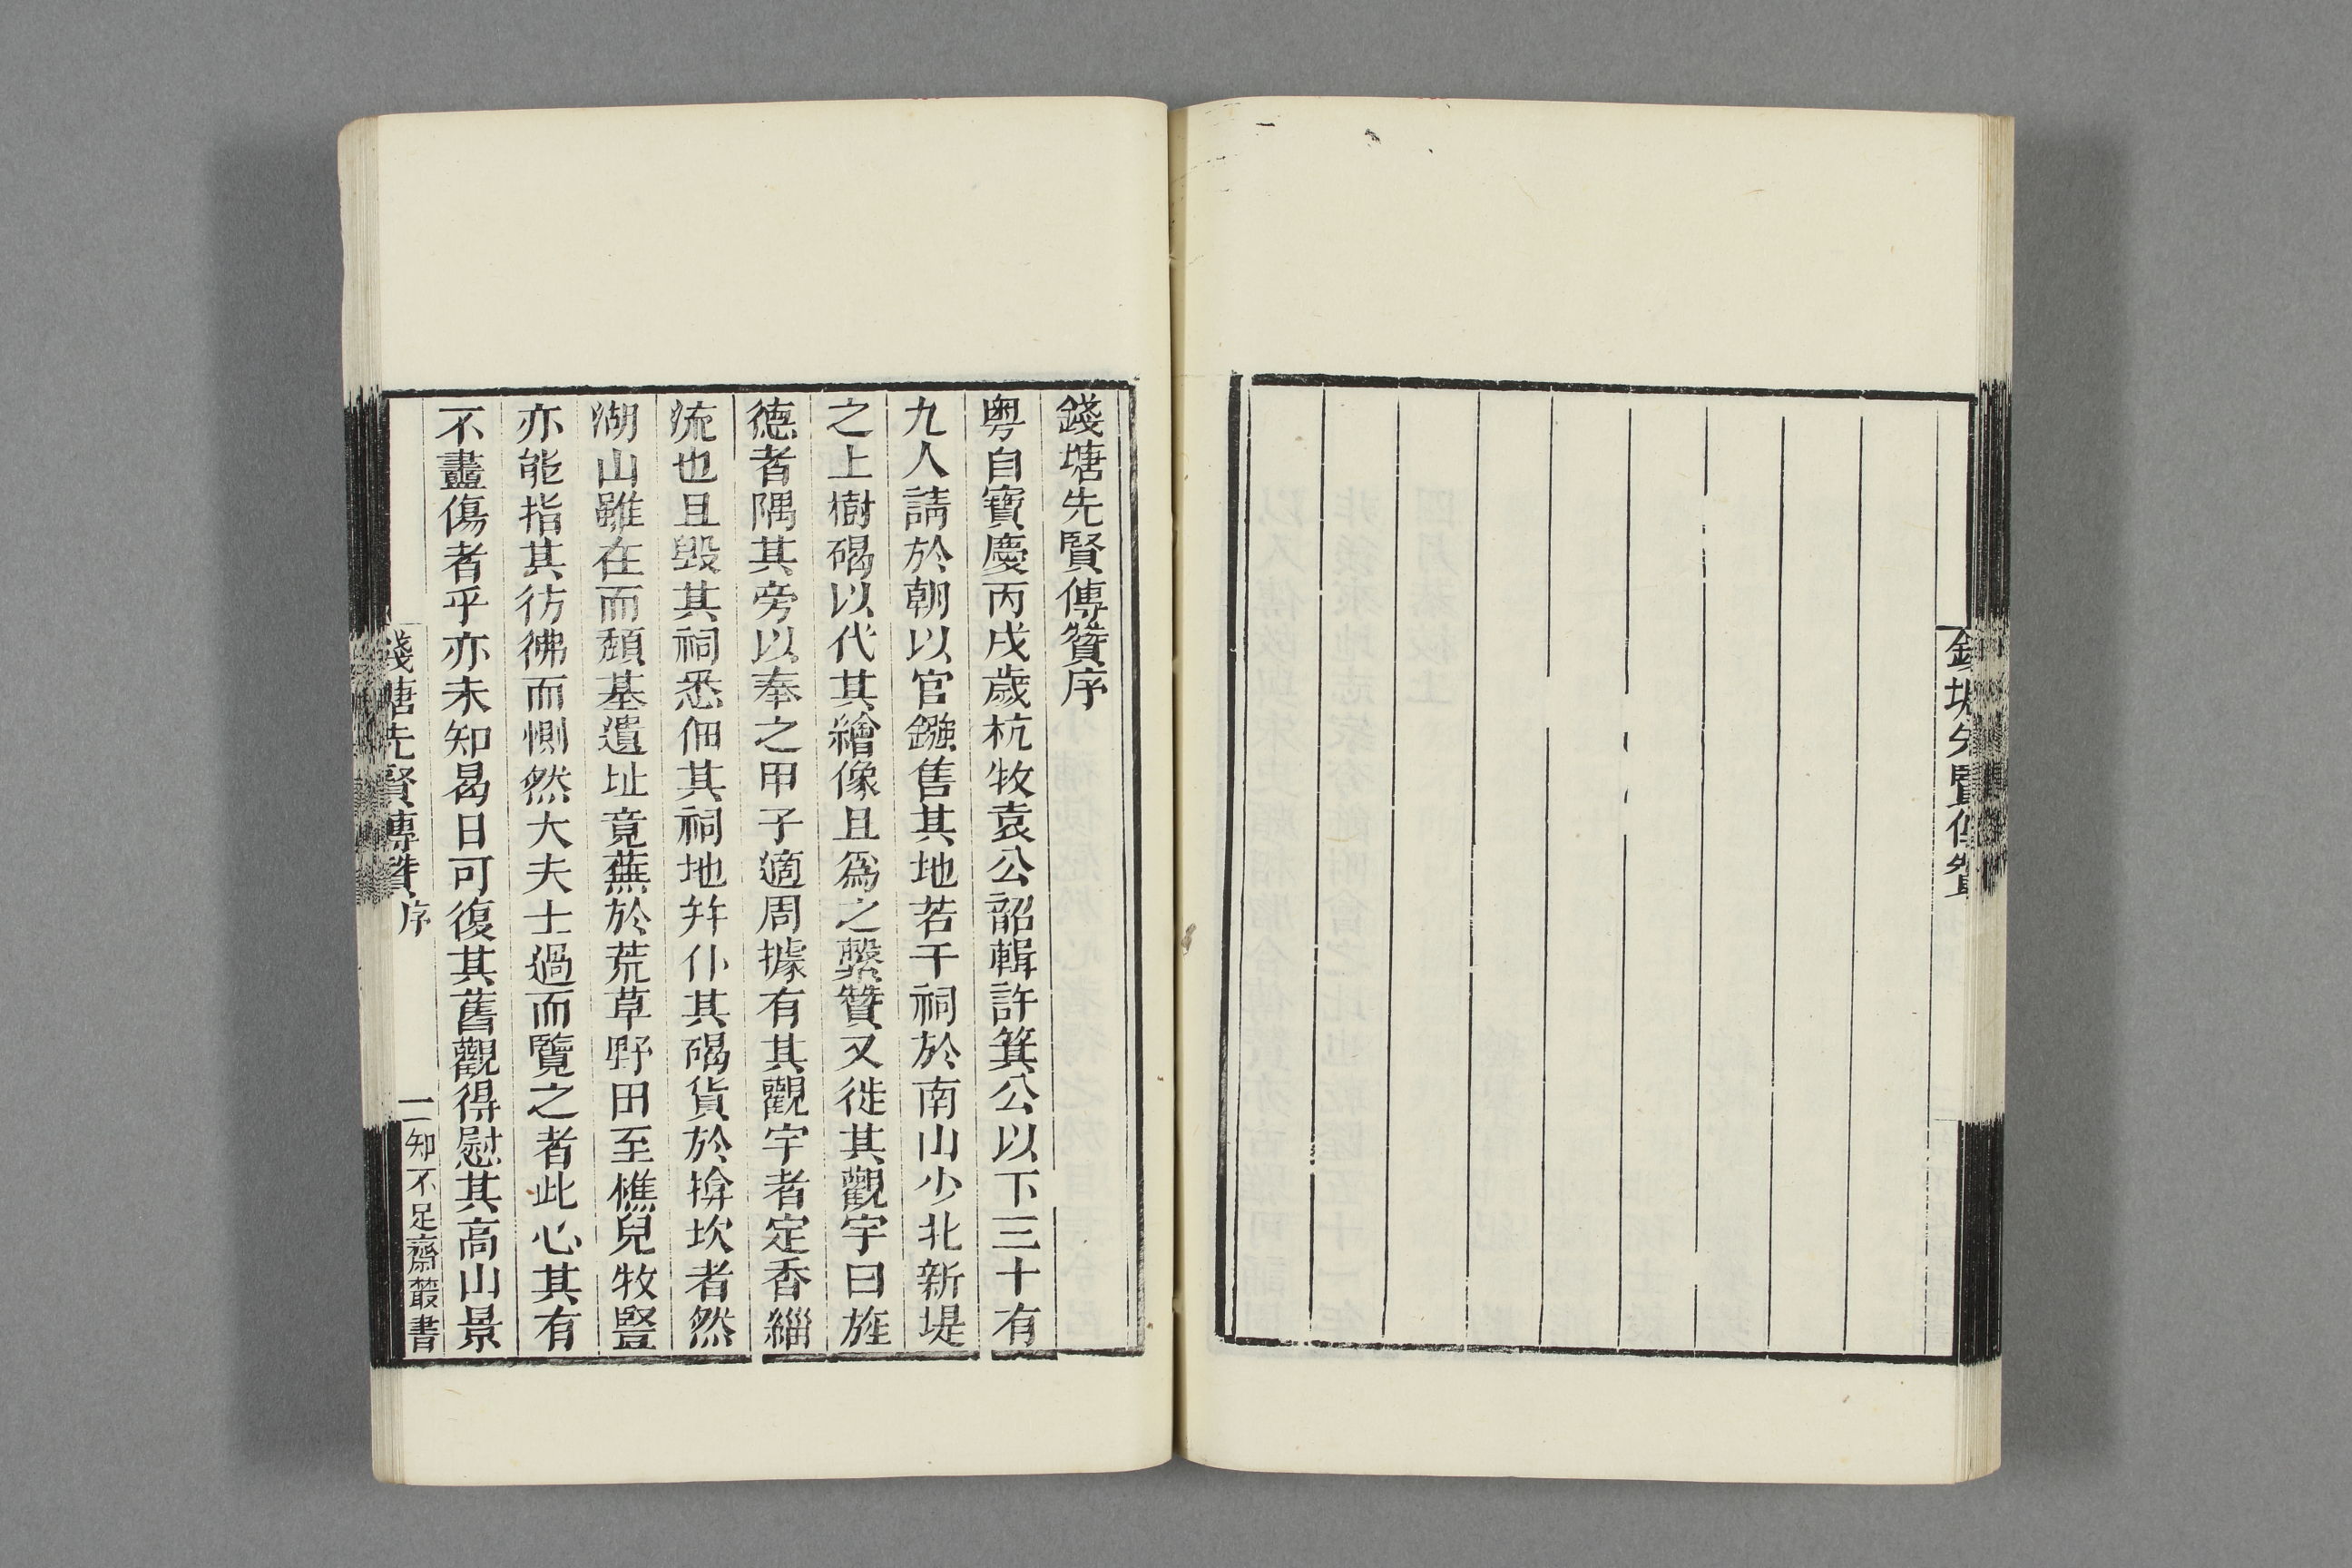 錢塘先賢傳贊
錢塘先賢傳贊序
粤自寶慶丙戌歲杭牧袁公韶輯許箕公以下三十有
九人請於朝以官鏹售其地若干祠於南山少北新堤
之上樹碣以代其繪像且爲之繫贊又徙其觀宇曰旌
德者隅其旁以奉之甲子適周據有其觀宇者定香緇
流也且毁其祠悉佃其祠地并仆其碣貨於揜坎者然
湖山雖在而頹基遺址竟蕪於荒草野田至樵兒牧豎
亦能指其彷彿而惻然大夫士過而覽之者此心其有
不盡傷者乎亦未知曷日可復其舊觀得慰其高山景
錢塘先賢傳贊 序
一 知不足齋叢書